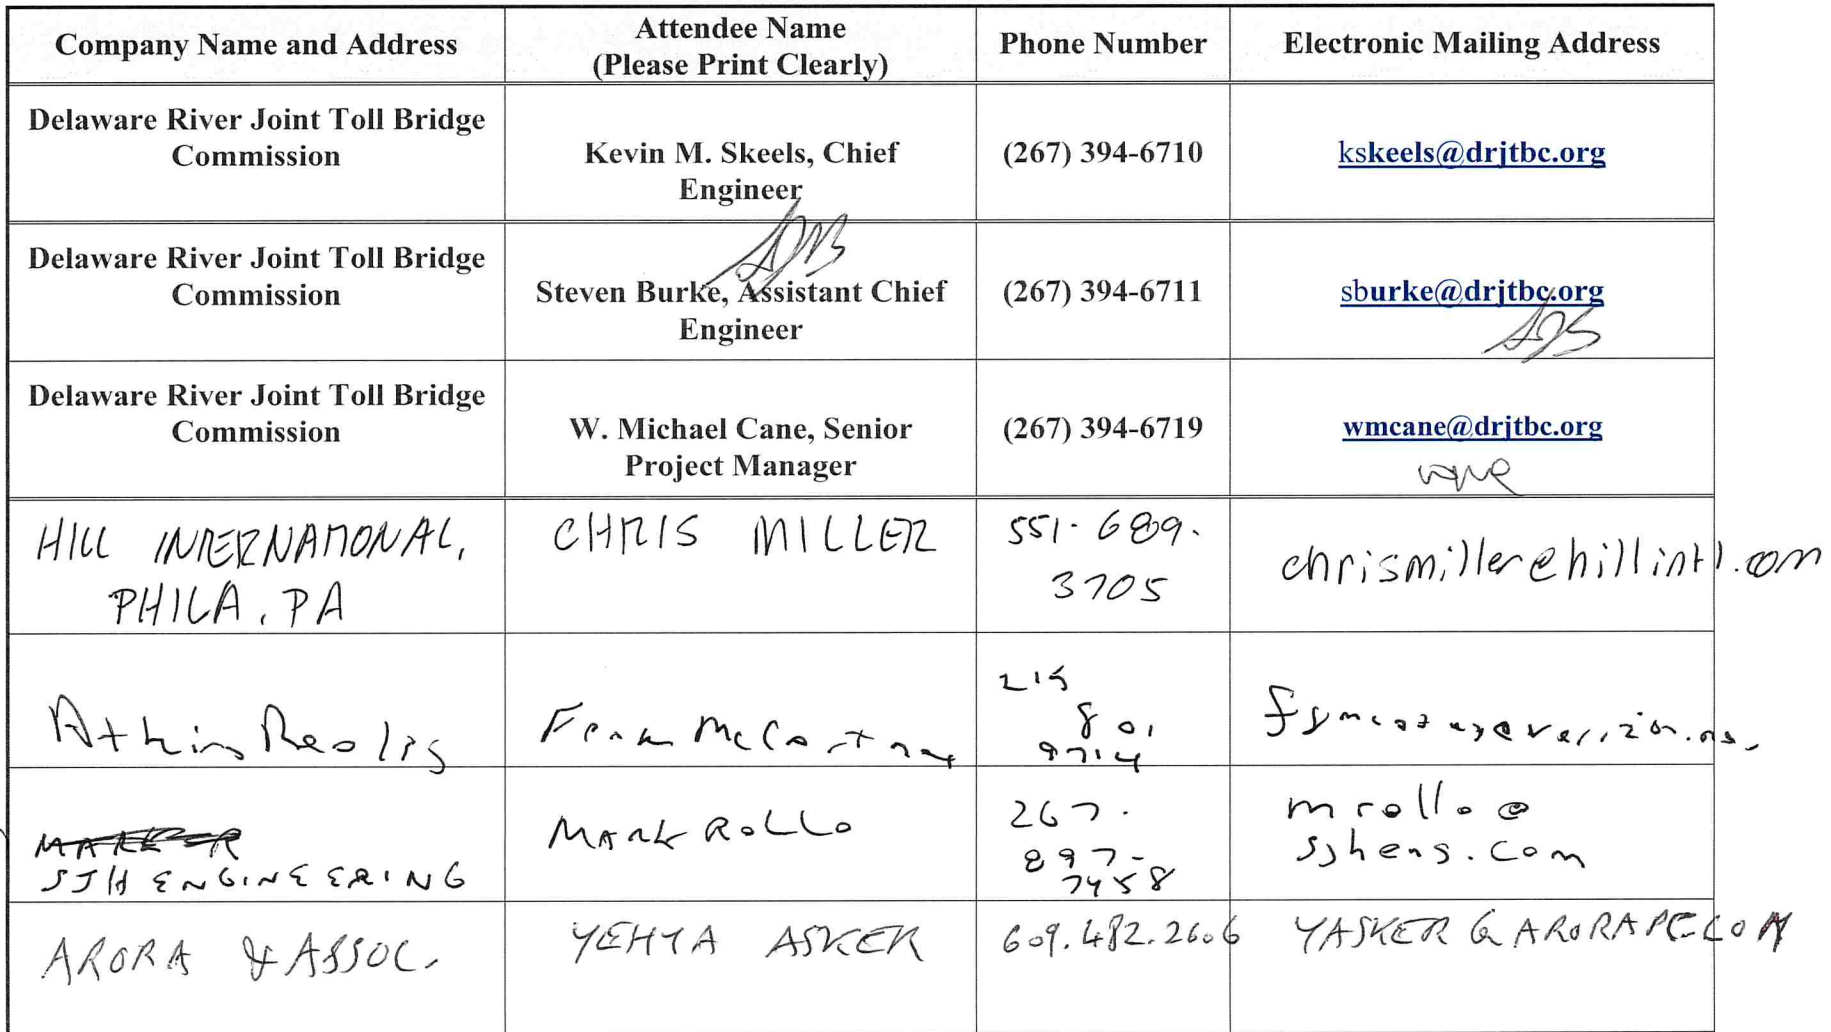 Company Name and Address
Attendee Name
(Please Print Clearly)
Phone Number
Electronic Mailing Address
Delaware River Joint Toll Bridge
Commission
Kevin M. Skeels, Chief
Engineer
(267) 394-6710
kskeels@drjtbc.org
Delaware River Joint Toll Bridge
Commission
Steven Burke, Assistant Chief
Engineer
(267) 394-6711
sburke@drjtbc.org
Delaware River Joint Toll Bridge
Commission
W. Michael Cane, Senior
Project Manager
(267) 394-6719
wmcane@drjtbc.org
HILL INTERNATIONAL,
PHILA, PA
CHRIS MILLER
551-689-
3705
chrismiller@hillintl.com
AtkinsRealis
Frank McCartney
215
801
9714
MARK ROLLO
SJH ENGINEERING
267-
897-
7458
mrollo@
sjheng.com
ARORA & ASSOC.
YEHYA ASKER
609.482.2606
YASKER@ARORAPC.COM